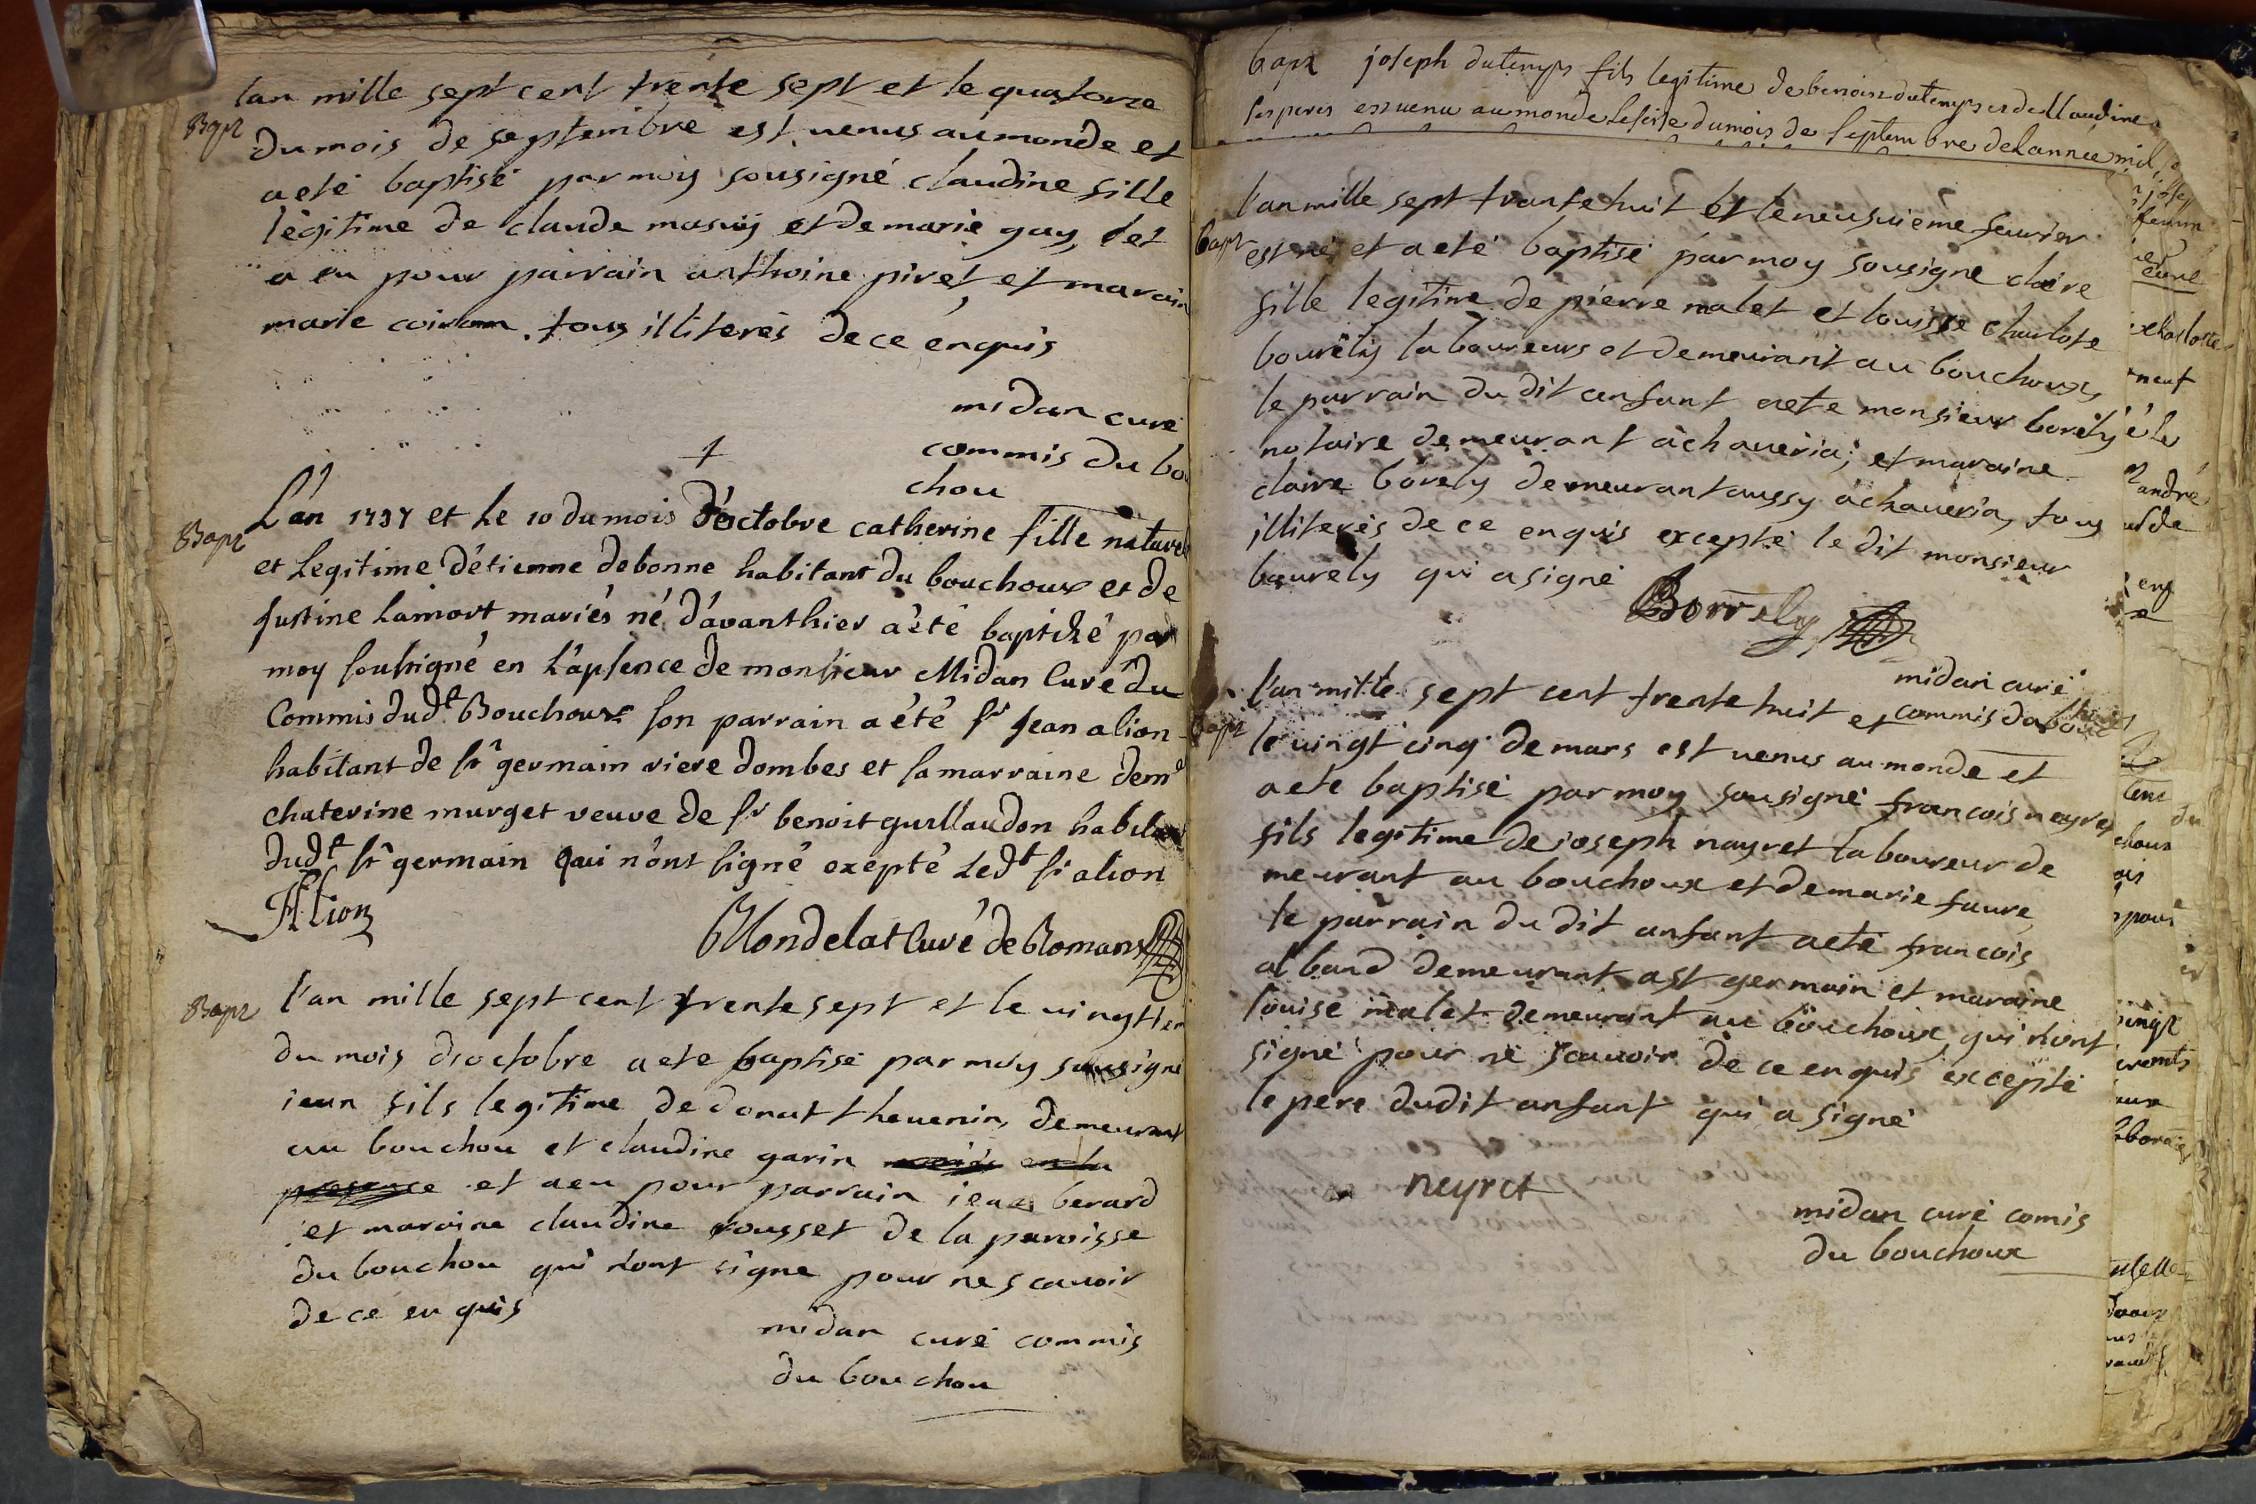 Bapt
lan mille sept cent trente sept et le quatorze
du mois de septembre est venus au monde et
a eté baptisé par moy sousigné claudine fille
légitime de claude masuÿ et de marie gay, et
a eu pour parrain anthoine piret et marain
marie coiram. tous illiterés de ce enquis
midan curé
commis du bou
chou
Bapt
L'an 1737 et Le 10 du mois d'octobre catherine fille naturel
et Legitime d'étienne debonne habitant du bouchoux et de
Justine Lamort mariés né d'avanthier a été baptizé par
moy soussigné en L'apsence de monsieur Midan Curé du
Commis dudt Bouchoux son parrain a été sr Jean alion
habitant de st germain riere dombes et sa marraine demd
chaterine murget veuve de sr benoit guillaudon habitant
dudt st germain qui n'ont signé exepté Ledt sr alion
Alion
Blondelat Curé de Romans
Bapt
l'an mille sept cent trente sept et le vingtien
du mois d'octobre a ete baptisé par moy sousigné
iean fils legitime de donat thevenin demeurant
au bouchou et claudine garin mariés en la
presence et a eu pour parrain iean berard
et maraine claudine rousset de la paroisse
du bouchou qui n'ont signé pour ne scavoir
de ce en quis
midan curé commis
du bouchou
bapt joseph dutemps fils legitime de benoist dutemps et de Claudine
ses peres est venu au monde le seise du mois de septembre de Lannee mil
bapt
l'an mille sept trante huit et le neusuieme feurier
est né et a eté baptisé par moy sousigné claire
fille legitime de pierre malet et louisse charlote
bourély laboureurs et demeurant au bouchoux,
le parrain du dit enfant a ete monsieur borély
notaire demeurant a chaveria; et maraine
claire borely demeurant aussy a chaveria, tous
illiterés de ce enquis excepté le dit monsieur
bourely qui a signé
Borrely
midan curé
commis du bouc
bapt
l'an mille sept cent trente huit et
le vingt cinq de mars est venus au monde et
a ete baptisé par moy sousigné francois neyret
fils legitime de ioseph nayret laboureur de
meurant au bouchoux et de marie faure
le parrain du dit anfant a eté francois
alband demeurant a st germain et maraine
louise malet demeurant au bouchoux, qui n'ont
signé pour ne scavoir de ce enquis excepté
le pere dudit anfant qui a signé
neyret
midan curé comis
du bouchoux